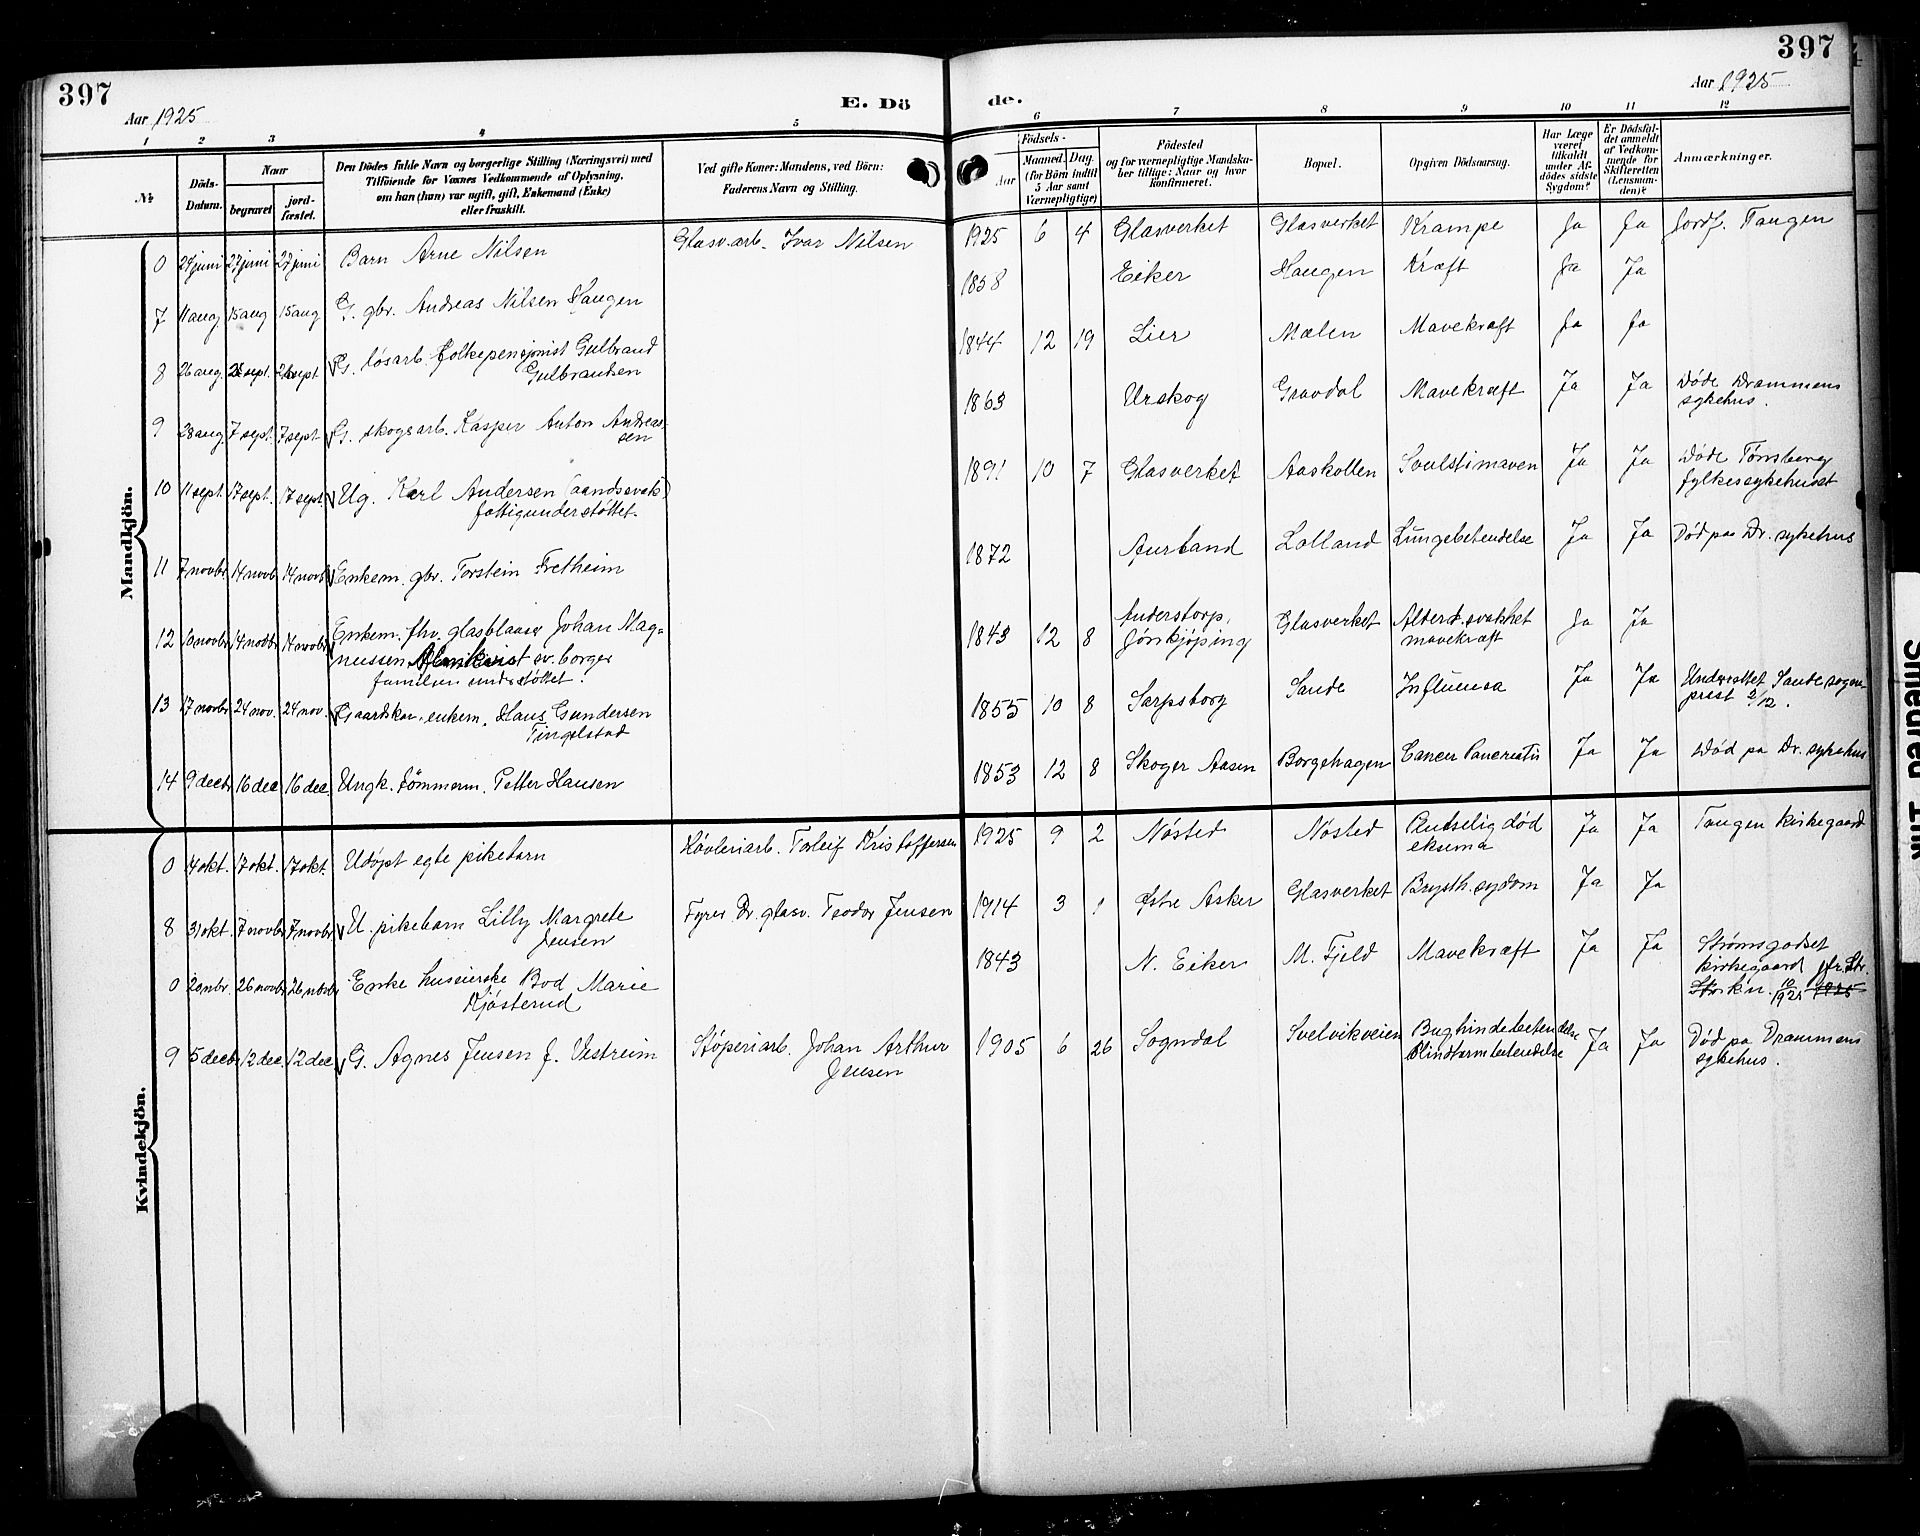 397
Aar 1925
E. Dö
de.
397
Aar 1925
1 2 3 4 5 6 7 8 9 10 11 12
№
Döds-
Datum.
Naar
begravet
jord-
fæstet.
Den Dödes fulde Navn og borgerlige Stilling (Næringsvei) med
Tilföiende for Voxnes Vedkommende af Oplysning,
om han (hun) var ugift, gift, Enkemand (Enke)
eller fraskilt.
Ved gifte Koner: Mandens, ved Börn:
Faderens Navn og Stilling.
Födsels-
Aar
Maaned. Dag.
(for Börn indtil
5 Aar samt
Værnepligtige)
Födested
og for værnepligtige Mandska-
ber tillige: Naar og hvor
konfirmeret.
Bopæl.
Opgiven Dödsaarsag.
Har Læge
været
tilkaldt
under Af-
dödes sidste
Sygdom?
Er Dödsfal-
det anmeldt
af Vedkom-
mende for
Skifteretten
(Lensman-
den)?
Anmærkninger.
Mandkjön.
0 24 juni 27 juni 27 juni Barn Arne Nilsen Glasv.arb. Ivar Nilsen 1925 6 4 Glasverket Glasverket Krampe Ja Ja Jordf. Tangen
7 11 aug 15 aug 15 aug G. gbr. Andreas Nilsen Haugen 1858 Eiker Haugen Kræft Ja Ja
8 26 aug. sept. sept G. løsarb. folkepensjonist Gulbrand
Gulbrantsen 1844 12 19 Lier Mælen Mavekræft Ja Ja
9 28 aug 7 sept. 7 sept G. skogsarb. Kasper Anton Andreas-
sen 1863 Urskog Gravdal Mavekræft Ja Ja Døde Drammens
sykehus.
10 11 sept. 17 sept. 17 sept. Ug. Karl Andersen (aandssvak)
fattigunderstøttet. 1891 10 7 Glasverket Aaskollen Svulst i maven Ja Ja Døde Tønsberg
fylkessykehuset
11 7 novbr 14 novb 14 novb Enkem. gbr. Torstein Fretheim 1872 Aurland Lolland Lungebetendelse Ja Ja Død paa Dr. sykehus
12 10 novbr 14 novbr 14 novbr Enkem. fhv. glasblaaser Johan Mag-
nussen Almkvist sv. borger
familien understøttet. 1843 12 8 Anderstorp,
Jønkjøping Glasverket Alterd.svakhet
mavekræft Ja Ja
13 17 novbr 24 nov. 24 nov. Gaardskar, enkem. Hans Gundersen
Tingelstad 1855 10 8 Sarpsborg Sande Influensa Ja Ja Underrettet Sande sogne-
prest 2/12.
14 9 decbr 16 dec 16 dec. Ungk. tømmerm. Petter Hansen 1853 12 8 Skoger Aasen Borgehagen Cancer Pancreatis Ja Ja Død pa Dr. sykehus
Kvindekjön.
0 4 okt. 7 okt. 7 okt. Udøpt egte pikebarn Høvleriarb. Torleif Kristoffersen 1925 9 2 Nøsted Nøsted Pludselig død
eksema Ja Ja Tangen kirkegaard
8 31 okt. 7 novbr 7 novbr U. pikebarn Lilly Margrete
Jensen Fyrer Dr. glasv. Teodor Jensen 1914 3 1 Østre Asker Glasverket Brysth. sygdom Ja Ja
0 20 nbr. 26 novbr 26 novbr Enke husuierske Bod Marie
Kjøsterud 1843 N. Eiker M. Fjeld Mavekræft Ja Ja Strømsgodset
kirkegaard jfr. Str.
kn. 10/1925 1925
9 5 decbr 12 dec. 12 dec. G. Agnes Jensen f. Vestreim Støperiarb. Johan Arthur
Jensen 1905 6 26 Sogndal Svelvikveien Bughindebetendelse
Blindtarmbetendelse Ja Ja Død pa Drammens
sykehus.
Smeared Ink